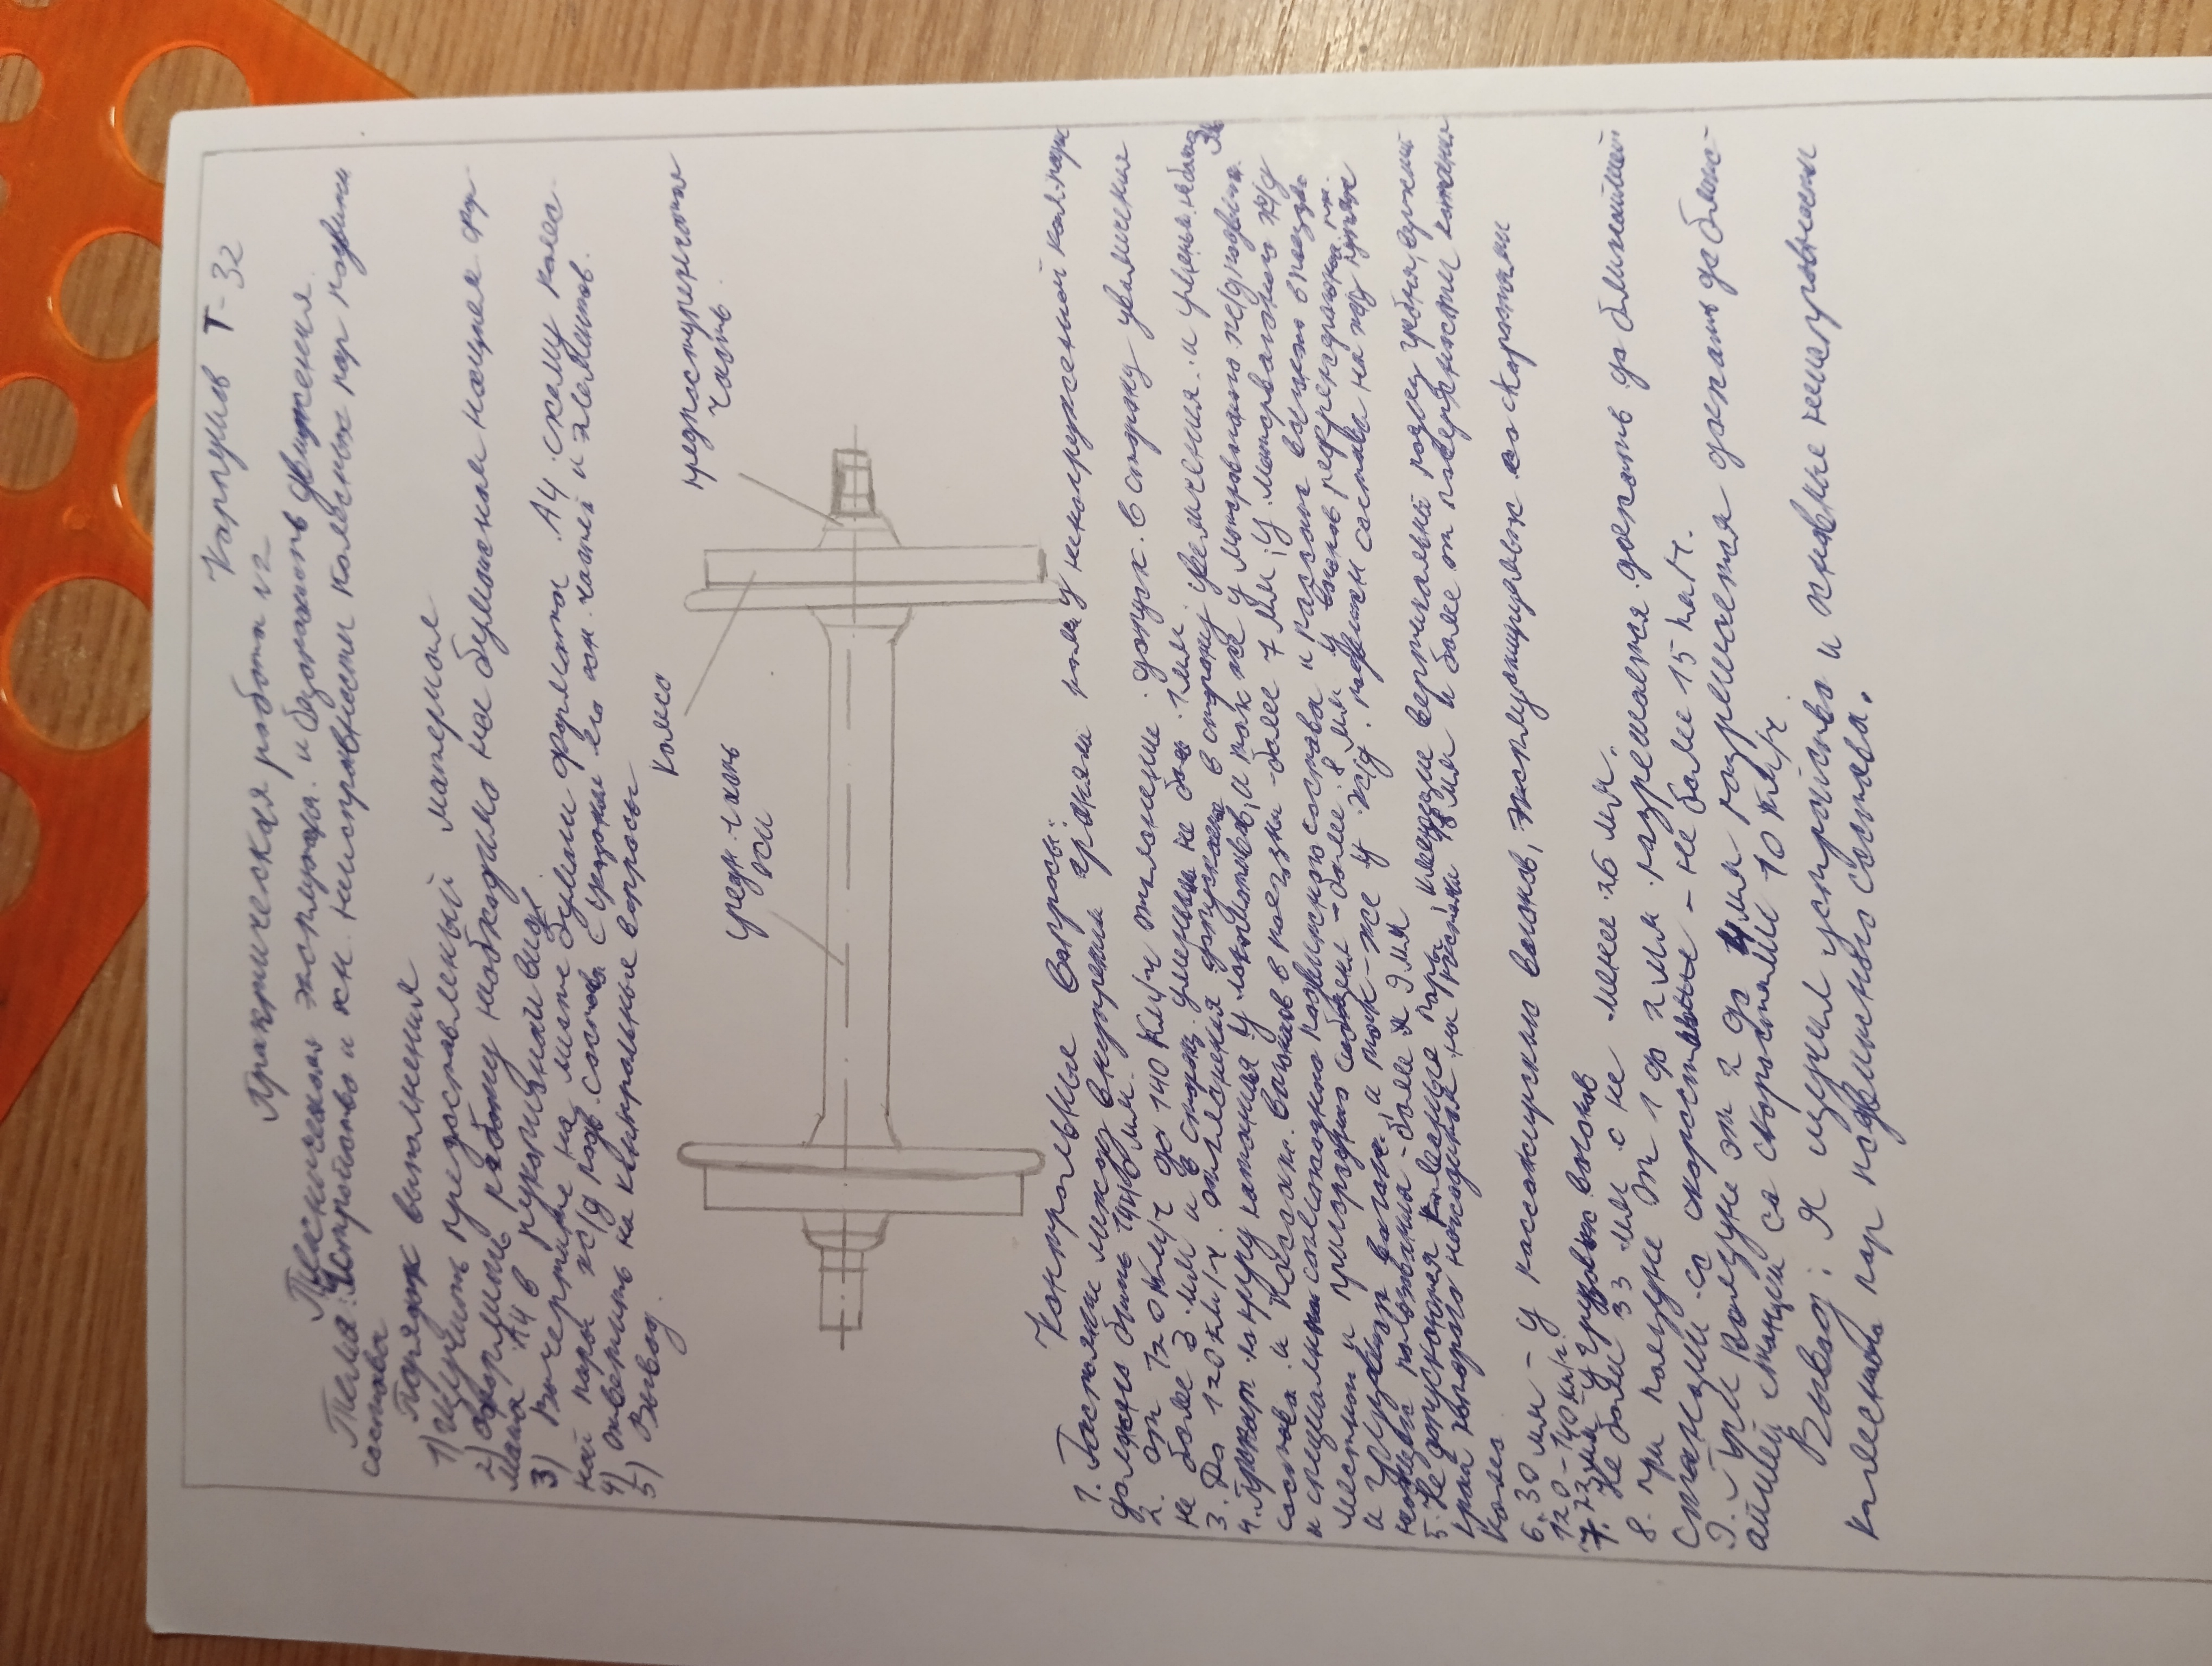 Каргулив Т-32
Практическая работа №2
Техническая эксплуатац. и безопасность движения.
Тема: Устройство и осн. неисправности колесных пар подвижн
состава
Порядок выполнения
1) Изучить предоставленный материал
2) Оформить работу необходимо на бумажном носителе фор-
мата А4 в рукописном виде
3) Вычертите на листе бумаги формата А4 схему колес-
ной пары ж/д подв. состава с указан его осн. частей и элементов.
4) Ответить на контрольные вопросы
5) Вывод.
колесо
средн. часть
оси
предподступичная
часть
Контрольные вопросы:
1. Растояние между внутренними гранями колес у ненагруженной кол. пары
должно быть 1440 мм.
2. От 120 км/ч до 140 км/ч отклонение допуск. в сторону увеличения
не более 3 мм и в сторону уменьшен не более 1 мм.
3. До 120 км/ч. отклонения допускаем в сторону увеличения и уменьш. не более 3м
4. Прокат по кругу катания у локомотивов, и так же у моторвагонного ж/д подвижн.
состава и пассажи. вагонов в поездки - более 7 мм; У моторвагонного ж/д
и специальном самоходного подвижного состава и пассажи вагонов в поездах
местного и пригородного сообщения - более 8 мм у вагонов рефрежераторн. п.
и грузовых вагонов, и так-же у ж/д. подвижн состава на ж/д путях
необщего пользования - более 9 мм
5. Не допускаются колесные пары имеющие вертикальный подрез гребня, ... который
... которого находится на расстоянии 18 мм и более от поверхности катания
колеса
6. 30 мм - у пассажирских вагонов, эксплуатируемых со скоростями
120-140 км/ч
7. 23 мм у грузовых вагонов
Не более 33 мм с не менее 26 мм.
8. При ползуне от 1 до 2 мм разрешается доехать до ближайшей
станции со скоростью - не более 15 км/ч.
9. При ползуне от 2 до 4 мм разрешается доехать до ближ-
айшей станции со скоростями 10 км/ч
Вывод: Я изучил устройство и основные неисправности
колесных пар подвижного состава.